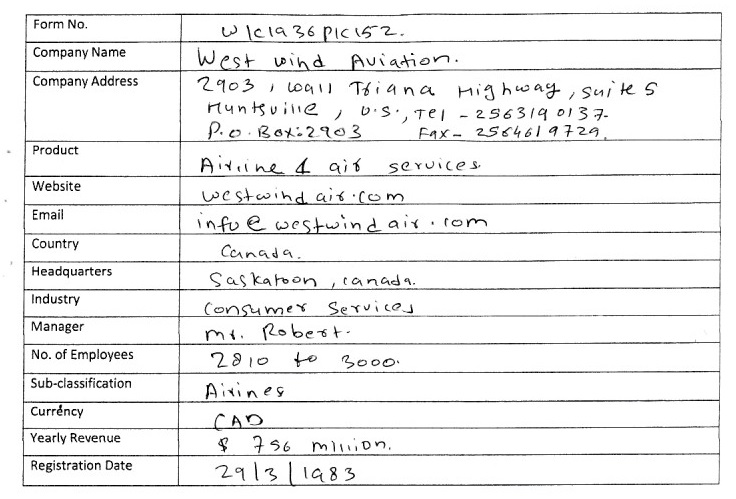 Form No. W1C1936PIC152.
Company Name West wind Aviation.
Company Address 2903, wall Triana Highway, suite 5
Huntsville, U.S., Tel - 256319 0137.
P.O. Box: 2903 Fax - 2564619729.
Product Airline & air services.
Website westwindair.com
Email info@westwindair.com
Country Canada.
Headquarters Saskatoon, canada.
Industry Consumer Services
Manager mr. Robert.
No. of Employees 2810 to 3000.
Sub-classification Airlines
Currency CAD
Yearly Revenue $ 756 million.
Registration Date 29/3/1983